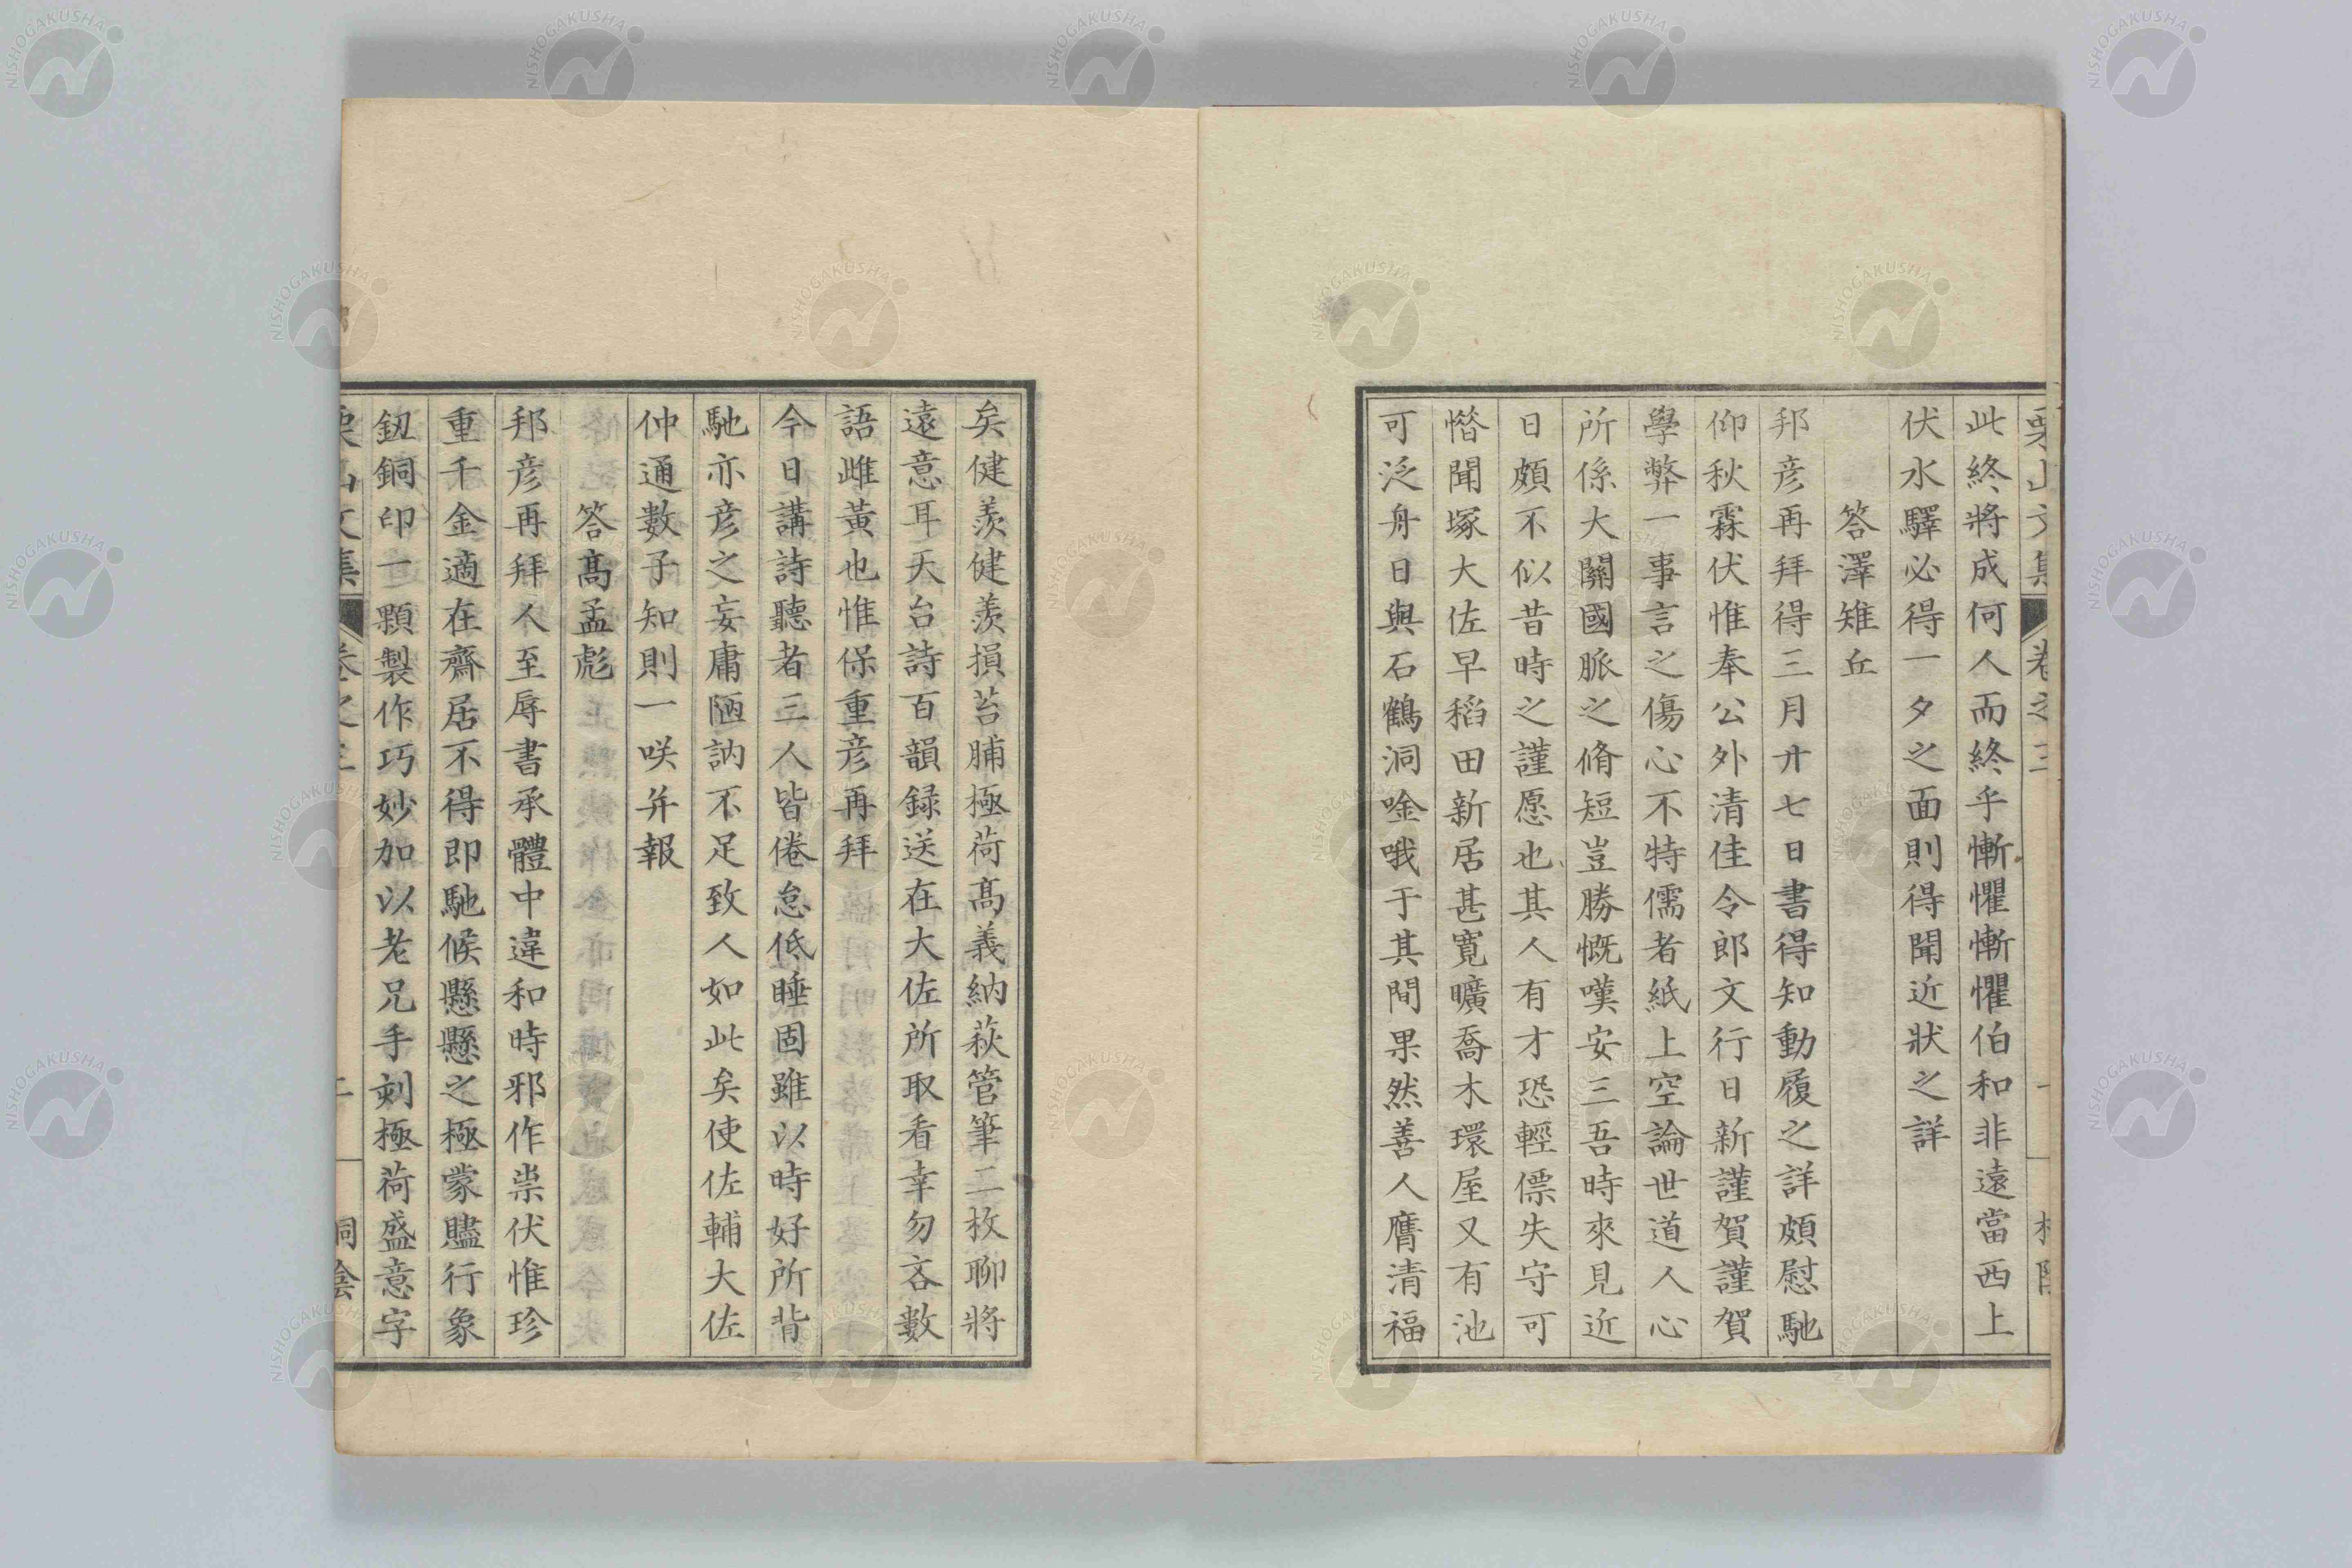 此終將成何人而終乎慚懼慚懼伯和非遠當西上
伏水驛必得一夕之面則得聞近狀之詳
答澤雉丘
邦彦再拜得三月廿七日書得知動履之詳頗慰馳
仰秋霖伏惟奉公外清佳令郎文行日新謹賀謹賀
學弊一事言之傷心不特儒者紙上空論世道人心
所係大關國脈之脩短豈勝慨嘆安三吾時來見近
日頗不似昔時之謹愿也其人有才恐輕僄失守可
憯聞塚大佐早稻田新居甚寛曠喬木環屋又有池
可泛舟日與石鶴洞唫哦于其間果然善人膺清福
矣健羨健羨損苔脯極荷髙義納萩管筆二枚聊將
遠意耳天台詩百韻録送在大佐所取看幸勿吝數
語雌黃也惟保重彦再拜
今日講詩聽者三人皆倦怠低睡固雖以時好所背
馳亦彦之妄庸陋訥不足致人如此矣使佐輔大佐
仲通數子知則一咲并報
答髙孟彪
邦彦再拜人至辱書承體中違和時邪作祟伏惟珍
重千金適在齋居不得即馳候懸懸之極蒙贐行象
鈕銅印一顆製作巧妙加以老兄手刻極荷盛意字
NISHOGAKUSHA